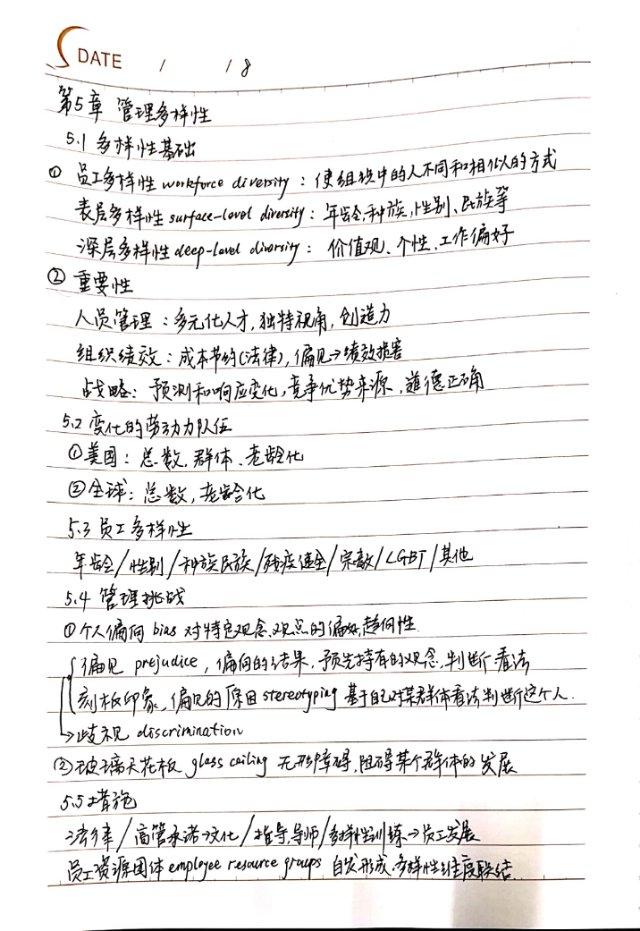 DATE / / 8
第5章 管理多样性
5.1 多样性基础
① 员工多样性 workforce diversity：使组织中的人不同和相似人的方式
表层多样性 surface-level diversity：年龄,种族,性别、民族等
深层多样性 deep-level diversity：价值观、个性、工作偏好
② 重要性
人员管理：多元化人才,独特视角,创造力
组织绩效：成本节约(法律),偏见→绩效损害
战略：预测和响应变化,竞争优势来源,道德正确
5.2 变化的劳动力队伍
①美国：总数,群体、老龄化
②全球：总数,老龄化
5.3 员工多样性
年龄/性别/种族民族/残疾健全/宗教/LGBT/其他
5.4 管理挑战
①个人偏向 bias 对特定观念、观点的偏好,趋向性
偏见 prejudice，偏向的结果，预先持有的观念,判断看法
刻板印象，偏见的原因 stereotyping 基于自己对某群体看法判断这个人.
→歧视 discrimination
②玻璃天花板 glass ceiling 无形障碍,阻碍某个群体的发展
5.5 措施
法律/高管承诺→文化/指导,导师/多样性训练→员工发展
员工资源团体 employee resource groups 自发形成,多样性维度联结.